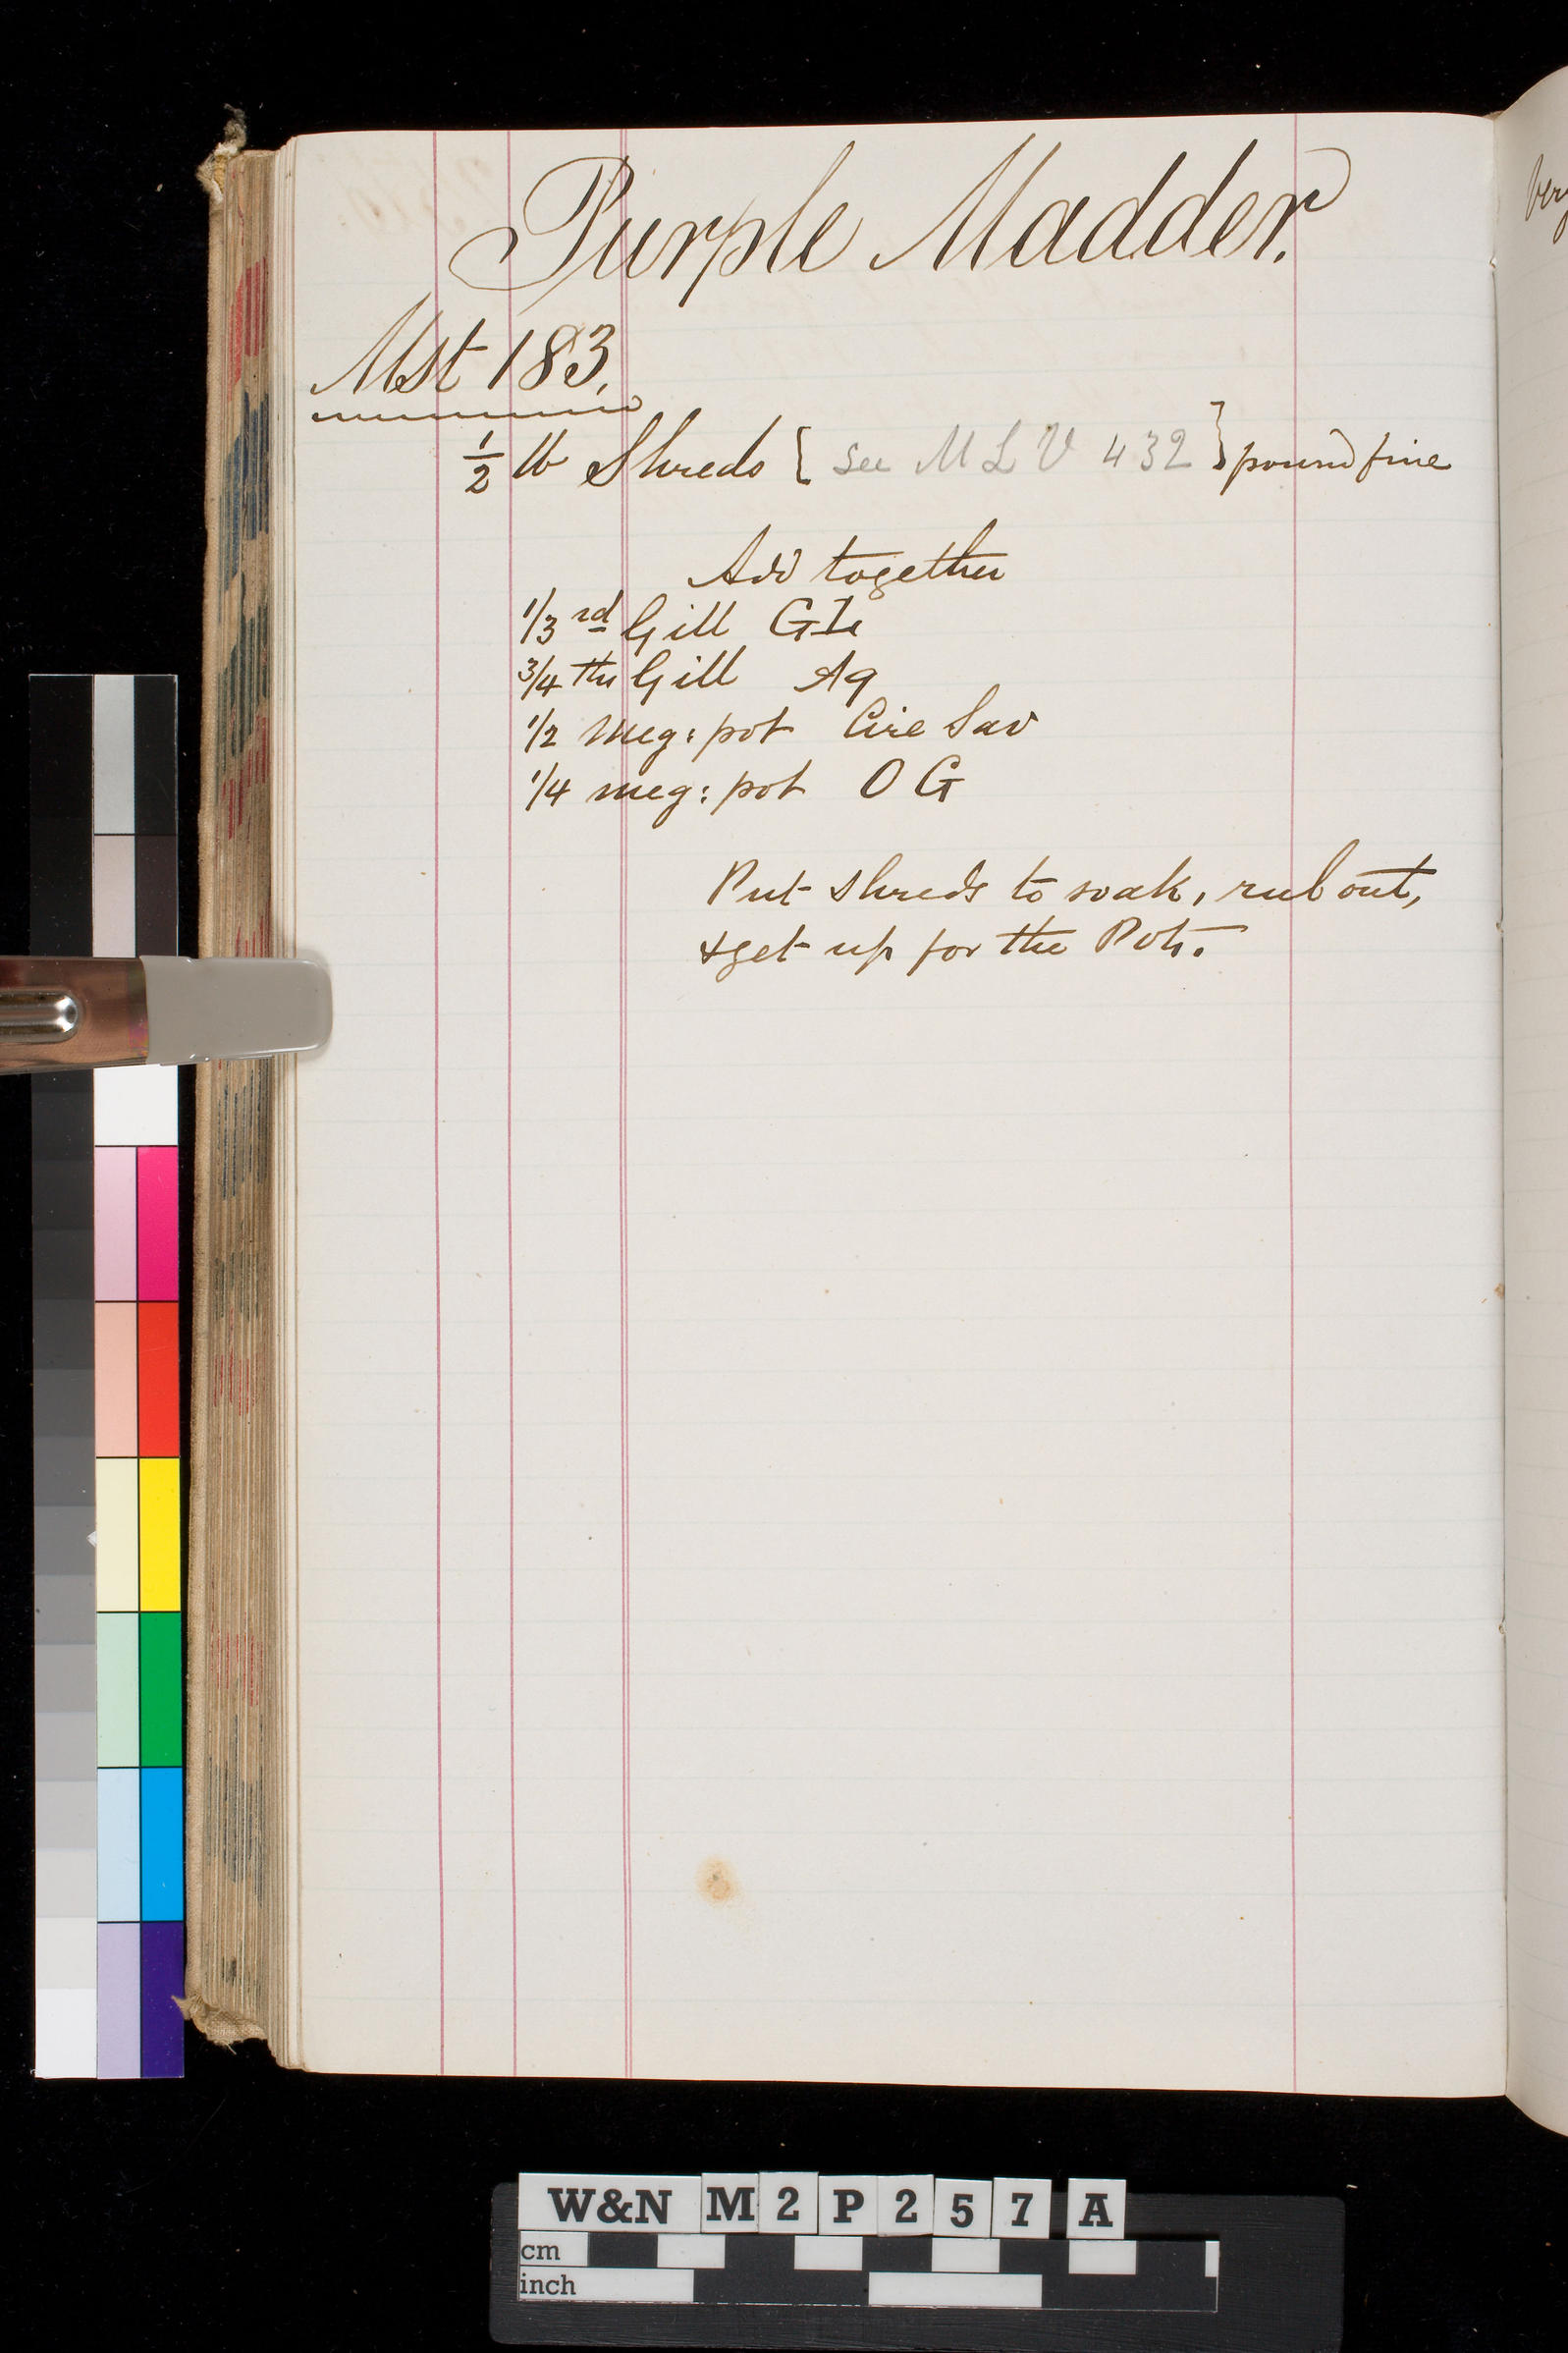 Purple Madder.
Mst 183.
1/2 lb Shreds { see M L V 432 } pound fine
Add together
1/3 rd Gill GL
3/4 th Gill Aq
1/2 meg: pot Cire Sav
1/4 meg: pot O G
Put shreds to soak, rub out,
& get up for the Pots.
W&N M 2 P 2 5 7 A
cm
inch